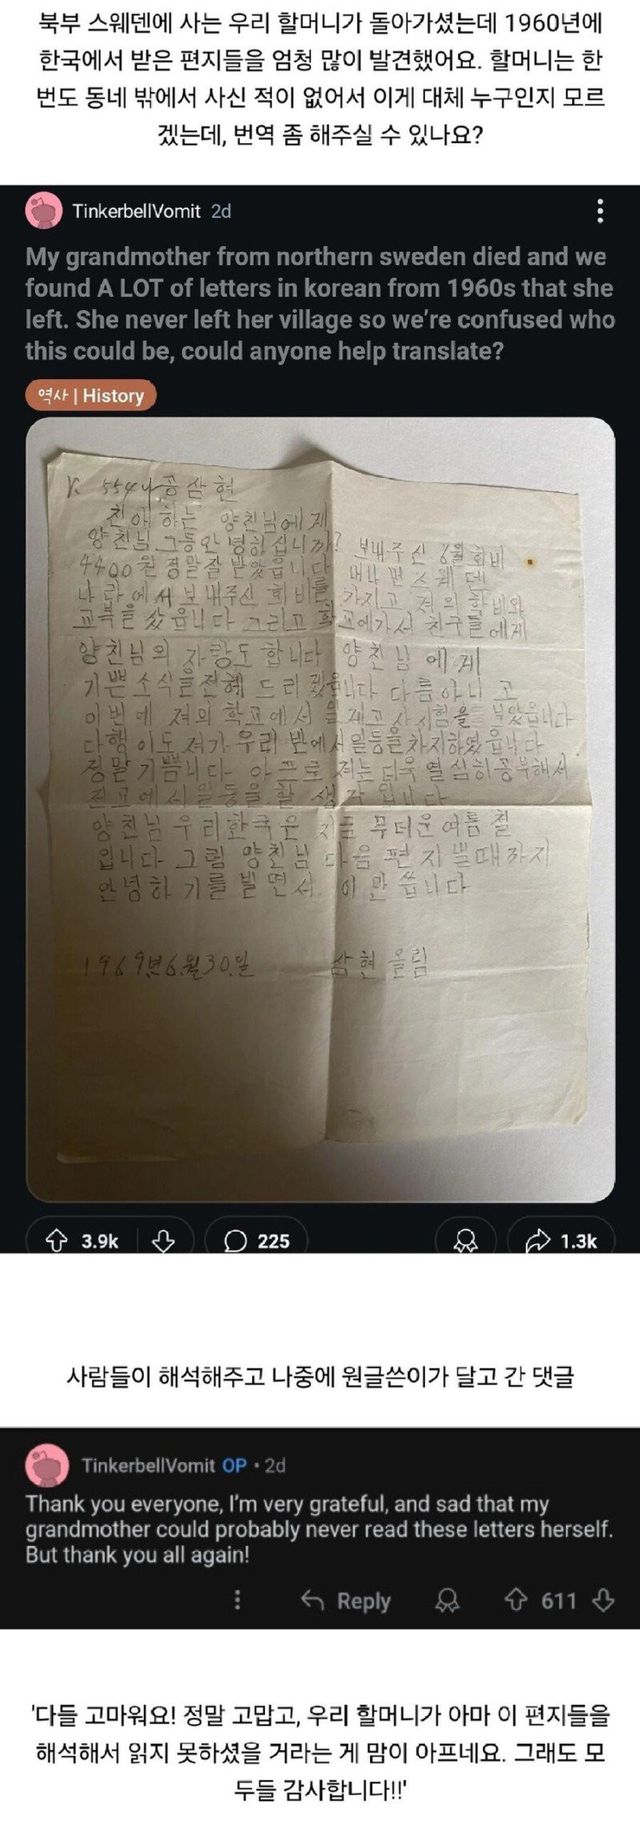 북부 스웨덴에 사는 우리 할머니가 돌아가셨는데 1960년에
한국에서 받은 편지들을 엄청 많이 발견했어요. 할머니는 한
번도 동네 밖에서 사신 적이 없어서 이게 대체 누구인지 모르
겠는데, 번역 좀 해주실 수 있나요?
TinkerbellVomit 2d
My grandmother from northern sweden died and we
found A LOT of letters in korean from 1960s that she
left. She never left her village so we're confused who
this could be, could anyone help translate?
역사 | History
K 554 공삼현
친애하는 양친님에게
양친님 그동안 녕하십니까? 보내주신 6월 회비
4400원 정말 잘 받았읍니다 머나먼 스웨덴
나라에서 보내주신 회비를 가지고 저의 학비와
교복을 샀읍니다 그리고 학교에가서 친구들에게
양친님의 자랑도 합니다 양친님에게
기쁜 소식을 전해 드리겠읍니다 다름아니고
이번에 저의 학교에서 일제고사시험을 보았읍니다
다행이도 저가 우리 반에서 일등을 차지하였읍니다
정말 기쁨니다 아프로 저는 더욱 열심히 공부해서
전교에서 일등을 할 생각입니다
양친님 우리한국은 지금 무더운 여름철
입니다 그럼 양친님 다음 편지쓸때까지
안녕하기를 빌면서 이만 씁니다
1969년 6월 30일 삼현 올림
3.9k 225 1.3k
사람들이 해석해주고 나중에 원글쓴이가 달고 간 댓글
TinkerbellVomit OP • 2d
Thank you everyone, I'm very grateful, and sad that my
grandmother could probably never read these letters herself.
But thank you all again!
Reply 611
'다들 고마워요! 정말 고맙고, 우리 할머니가 아마 이 편지들을
해석해서 읽지 못하셨을 거라는 게 맘이 아프네요. 그래도 모
두들 감사합니다!!'